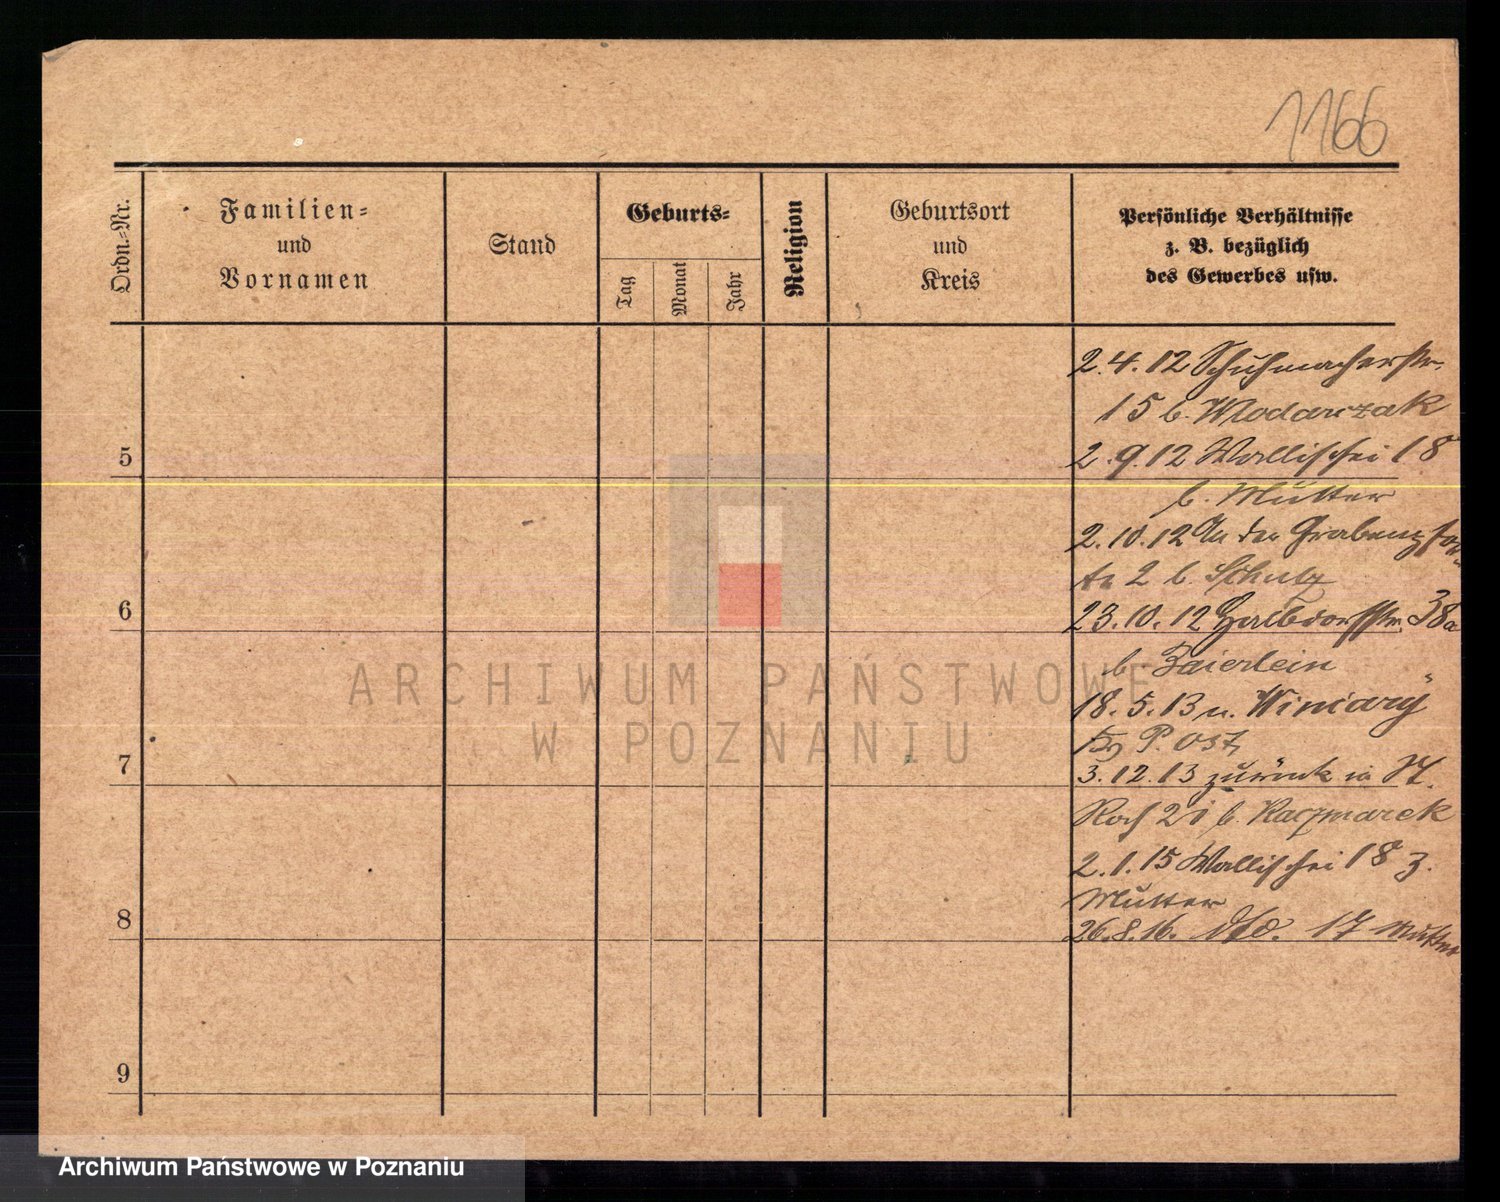 1166
Ordn.-Nr.
Familien-
und
Vornamen
Stand
Geburts-
Tag
Monat
Jahr
Religion
Geburtsort
und
Kreis
Persönliche Verhältnisse
z. B. bezüglich
des Gewerbes usw.
2.4.12 Schuhmacherstr.
15 b. Wlodarczak
5
2.9.12 Wallischei 18
b. Mutter
2.10.12 An der Grabenpfor
te 2 b. Schulz
6
23.10.12 Halbdorfstr. 38a
b. Baierlein
18.5.13 n. Winiary
P. Ost,
7
3.12.13 zurück in St.
Roch 21 b. Kaczmarek
2.1.15 Wallischei 18 z.
Mutter
8
26.8.16. 17 Mutter
9
ARCHIWUM PAŃSTWOWE
W POZNANIU
Archiwum Państwowe w Poznaniu